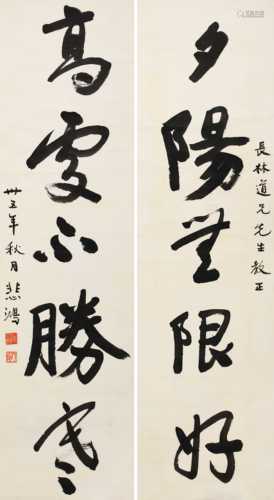 長林道兄先生教正
夕陽無限好
高處不勝寒
卅五年秋月悲鴻